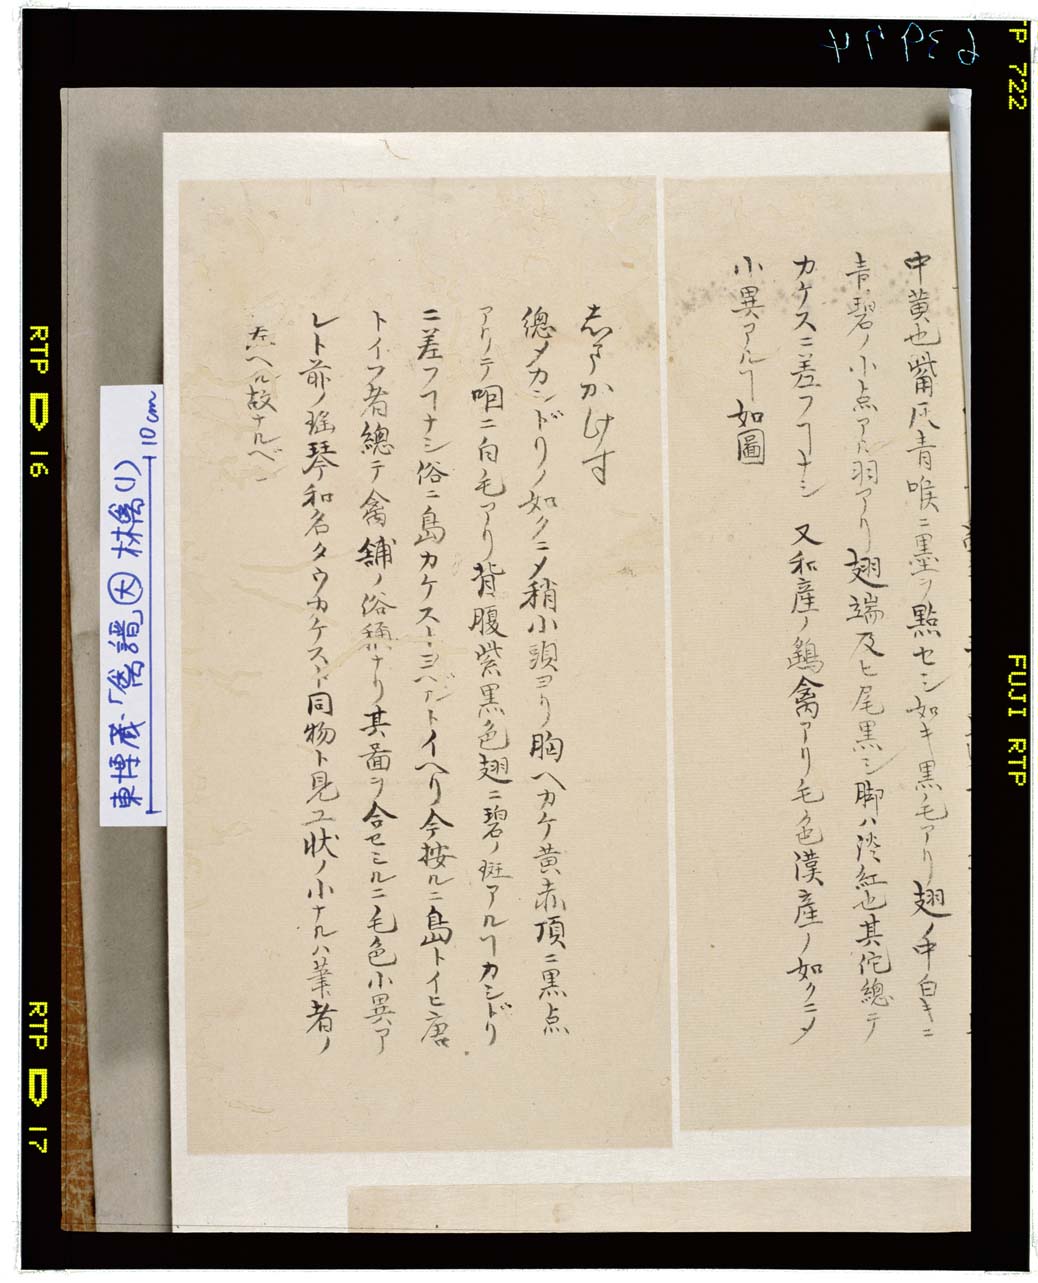 中黄也觜爪青喉ニ墨ヲ點セシ如キ黒毛アリ翅ノ中白キニ
青碧ノ小点アル羽アリ翅端及ヒ尾黒シ脚ハ淡紅也其佗總テ
カケスニ差フヿナシ 又和産ノ鷄禽アリ毛色漢産ノ如クニメ
小異アルヿ如圖
志まかけす
總メカシドリノ如クニメ稍小頭ヨリ胸ヘカケ黄赤頂ニ黒点
アリテ咽ニ白毛アリ背腹紫黒色翅ニ碧ノ斑アルヿカシドリ
ニ差フヿナシ俗ニ島カケストヨヘドトイヘリ今按ルニ島トイヒ唐
トイフ者總テ禽舗ノ俗稱ナリ其圖ヲ合セミルニ毛色小異ア
レト前ノ瑶琴和名タウカケスト同物ト見ユ状ノ小ナルハ筆者ノ
ヘル故ナルベシ
東博蔵「禽譜」大 林禽(1)
10cm
63974
RTP 16
RTP 17
TP 722
FUJI RTP